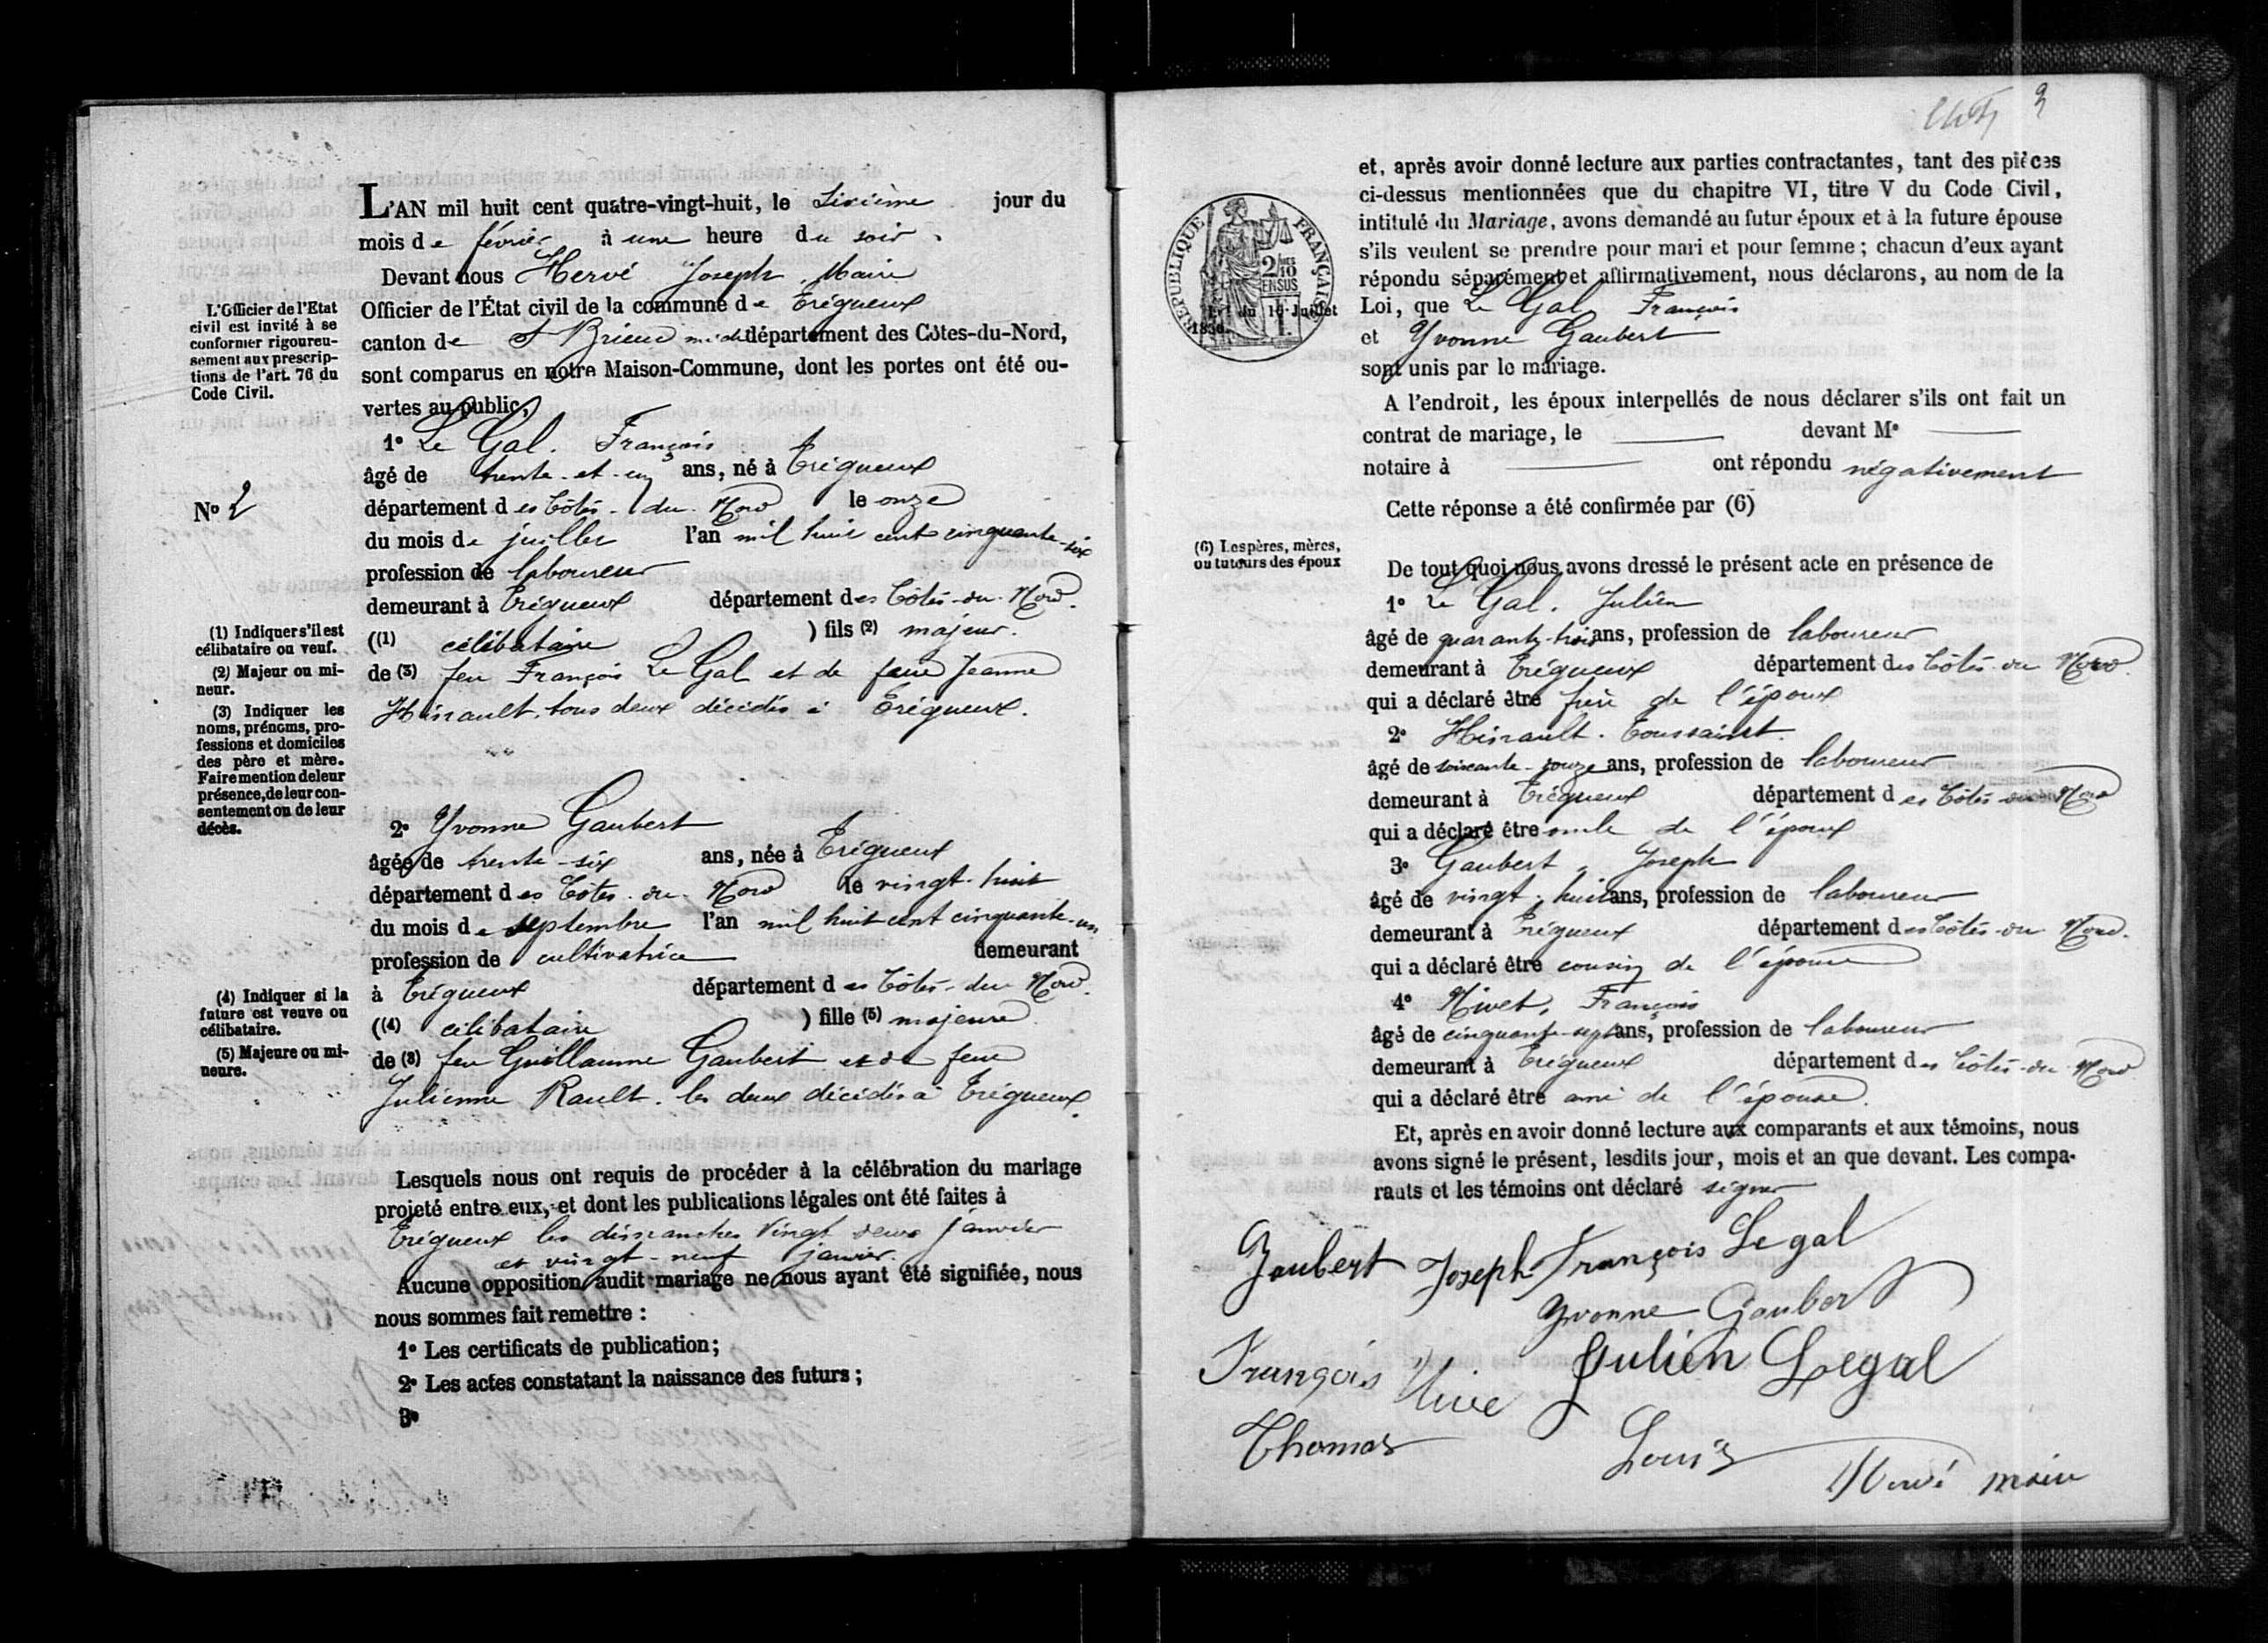 L'AN mil huit cent quatre-vingt-huit, le sixième jour du
mois de février à une heure du soir.
Devant nous Hervé Joseph Maire
Officier de l'État civil de la commune de Trégueux
canton de St Brieuc midi département des Côtes-du-Nord,
sont comparus en notre Maison-Commune, dont les portes ont été ou-
vertes au public,
L'Officier de l'Etat
civil est invité à se
conformer rigoureu-
sement aux prescrip-
tions de l'art. 76 du
Code Civil.
1° Le Gal. François
âgé de trente-et-un ans, né à Trégueux
No 2
département des Côtes-du-Nord le onze
du mois de juillet l'an mil huit cent cinquante-six
profession de laboureur
demeurant à Trégueux département des Côtes-du-Nord.
((1) célibataire ) fils (2) majeur.
de (3) feu François Le Gal et de feue Jeanne
Hinault, tous deux décédés à Trégueux.
(1) Indiquer s'il est
célibataire ou veuf.
(2) Majeur ou mi-
neur.
(3) Indiquer les
noms, prénoms, pro-
fessions et domiciles
des père et mère.
Faire mention de leur
présence, de leur con-
sentement ou de leur
décès.
2° Yvonne Gaubert
âgée de trente-six ans, née à Trégueux
département des Côtes-du-Nord le vingt-huit
du mois de septembre l'an mil huit cent cinquante-un
profession de cultivatrice demeurant
à Trégueux département des Côtes-du-Nord.
((4) célibataire ) fille (5) majeure
de (3) feu Guillaume Gaubert et de feue
Julienne Rault. les deux décédés à Trégueux.
(4) Indiquer si la
future est veuve ou
célibataire.
(5) Majeure ou mi-
neure.
Lesquels nous ont requis de procéder à la célébration du mariage
projeté entre eux, et dont les publications légales ont été faites à
Trégueux les dimanches vingt deux janvier
et vingt-neuf janvier.
Aucune opposition audit mariage ne nous ayant été signifiée, nous
nous sommes fait remettre :
1° Les certificats de publication;
2° Les actes constatant la naissance des futurs;
3°
3
et, après avoir donné lecture aux parties contractantes, tant des pièces
ci-dessus mentionnées que du chapitre VI, titre V du Code Civil,
intitulé du Mariage, avons demandé au futur époux et à la future épouse
s'ils veulent se prendre pour mari et pour femme; chacun d'eux ayant
répondu séparément et affirmativement, nous déclarons, au nom de la
Loi, que Le Gal François
et Yvonne Gaubert
sont unis par le mariage.
RÉPUBLIQUE FRANÇAISE
2/10 EN SUS
A l'endroit, les époux interpellés de nous déclarer s'ils ont fait un
contrat de mariage, le devant Me
notaire à ont répondu négativement
Cette réponse a été confirmée par (6)
(6) Les pères, mères,
ou tuteurs des époux
De tout quoi nous avons dressé le présent acte en présence de
1° Le Gal. Julien
âgé de quarante-trois ans, profession de laboureur
demeurant à Trégueux département des Côtes-du-Nord.
qui a déclaré être frère de l'époux
2° Hinault. Toussaint.
âgé de soixante- ans, profession de laboureur
demeurant à Trégueux département des Côtes-du-Nord
qui a déclaré être oncle de l'époux
3° Gaubert, Joseph
âgé de vingt-huit ans, profession de laboureur
demeurant à Trégueux département des Côtes-du-Nord.
qui a déclaré être cousin de l'épouse
4° Nivet, François
âgé de cinquante-sept ans, profession de laboureur
demeurant à Trégueux département des Côtes-du-Nord
qui a déclaré être ami de l'épouse.
Et, après en avoir donné lecture aux comparants et aux témoins, nous
avons signé le présent, lesdits jour, mois et an que devant. Les compa-
rants et les témoins ont déclaré signer
Gaubert Joseph François Legal
Yvonne Gaubert
François Julien Legal
Thomas Louis Hervé maire